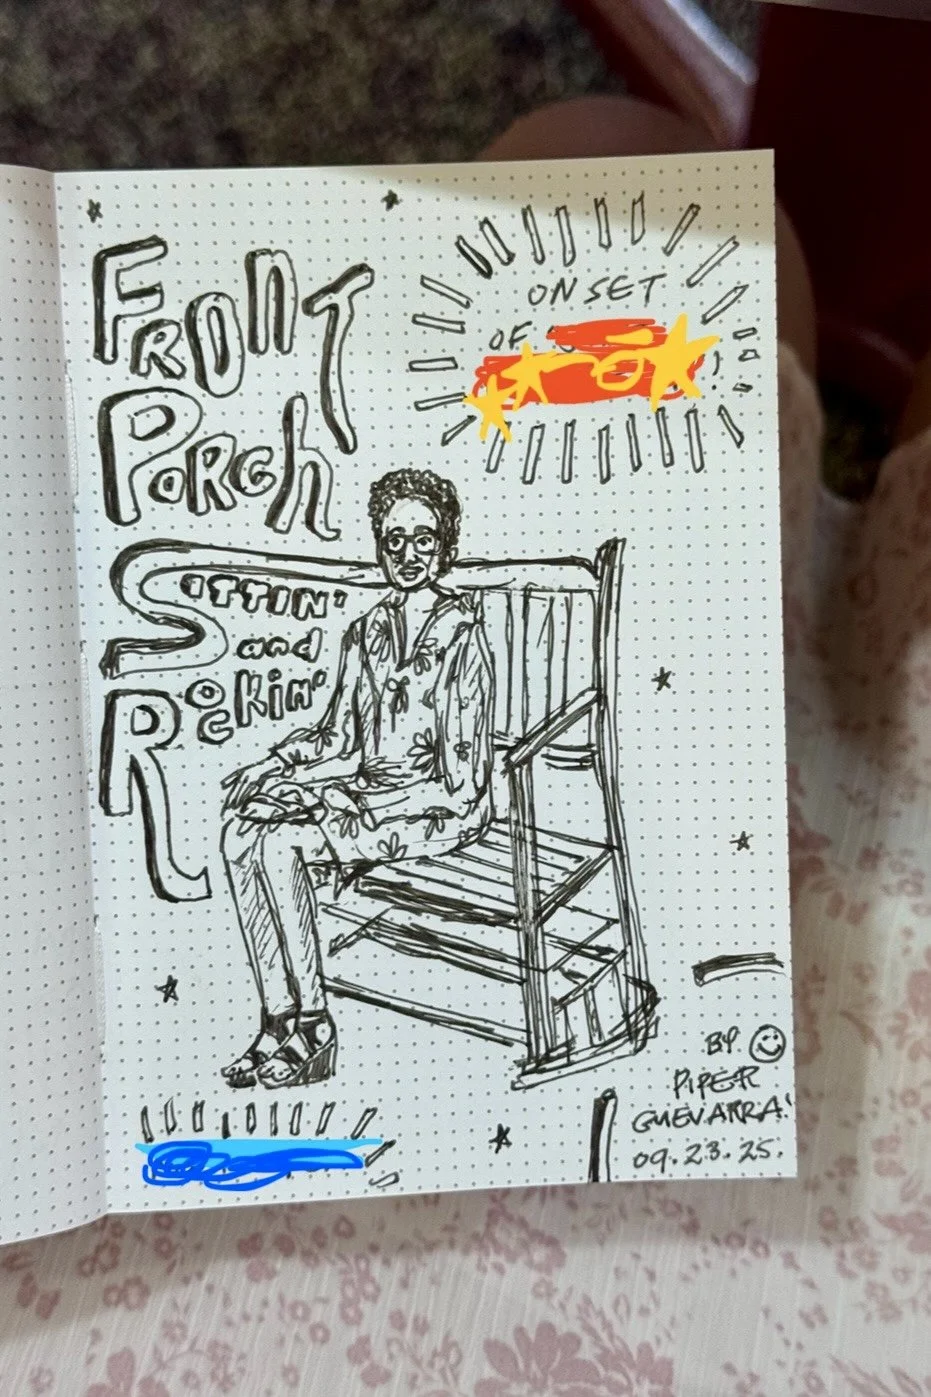 FRONT
PORCH
SITTIN'
and
ROCKIN'
ON SET
OF
!
BY
PIPER
GUEVARRA!
09.23.25.